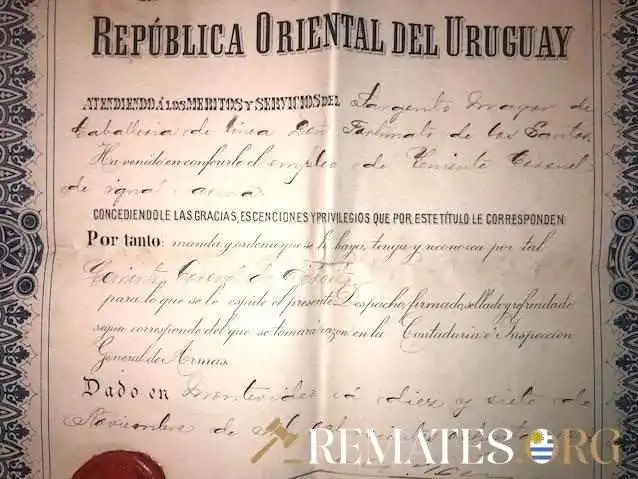 REPÚBLICA ORIENTAL DEL URUGUAY
ATENDIENDO Á LOS MERITOS Y SERVICIOS DEL Sargento Mayor de
Caballeria de linea Don Fortunato de los Santos
Ha venido en conferirle el empleo de Teniente Coronel
de igual arma
CONCEDIENDOLE LAS GRACIAS, ESCENCIONES Y PRIVILEGIOS QUE POR ESTE TÍTULO LE CORRESPONDEN:
Por tanto: manda y ordena que se le haya, tenga y reconozca por tal
Teniente Coronel de
para lo que se le espide el presente Despacho, firmado, sellado y refrendado
segun corresponde del que se tomará razon en la Contaduria é Inspeccion
General de Armas.
Dado en Montevideo á diez y siete de
Noviembre de mil
REMATES.ORG